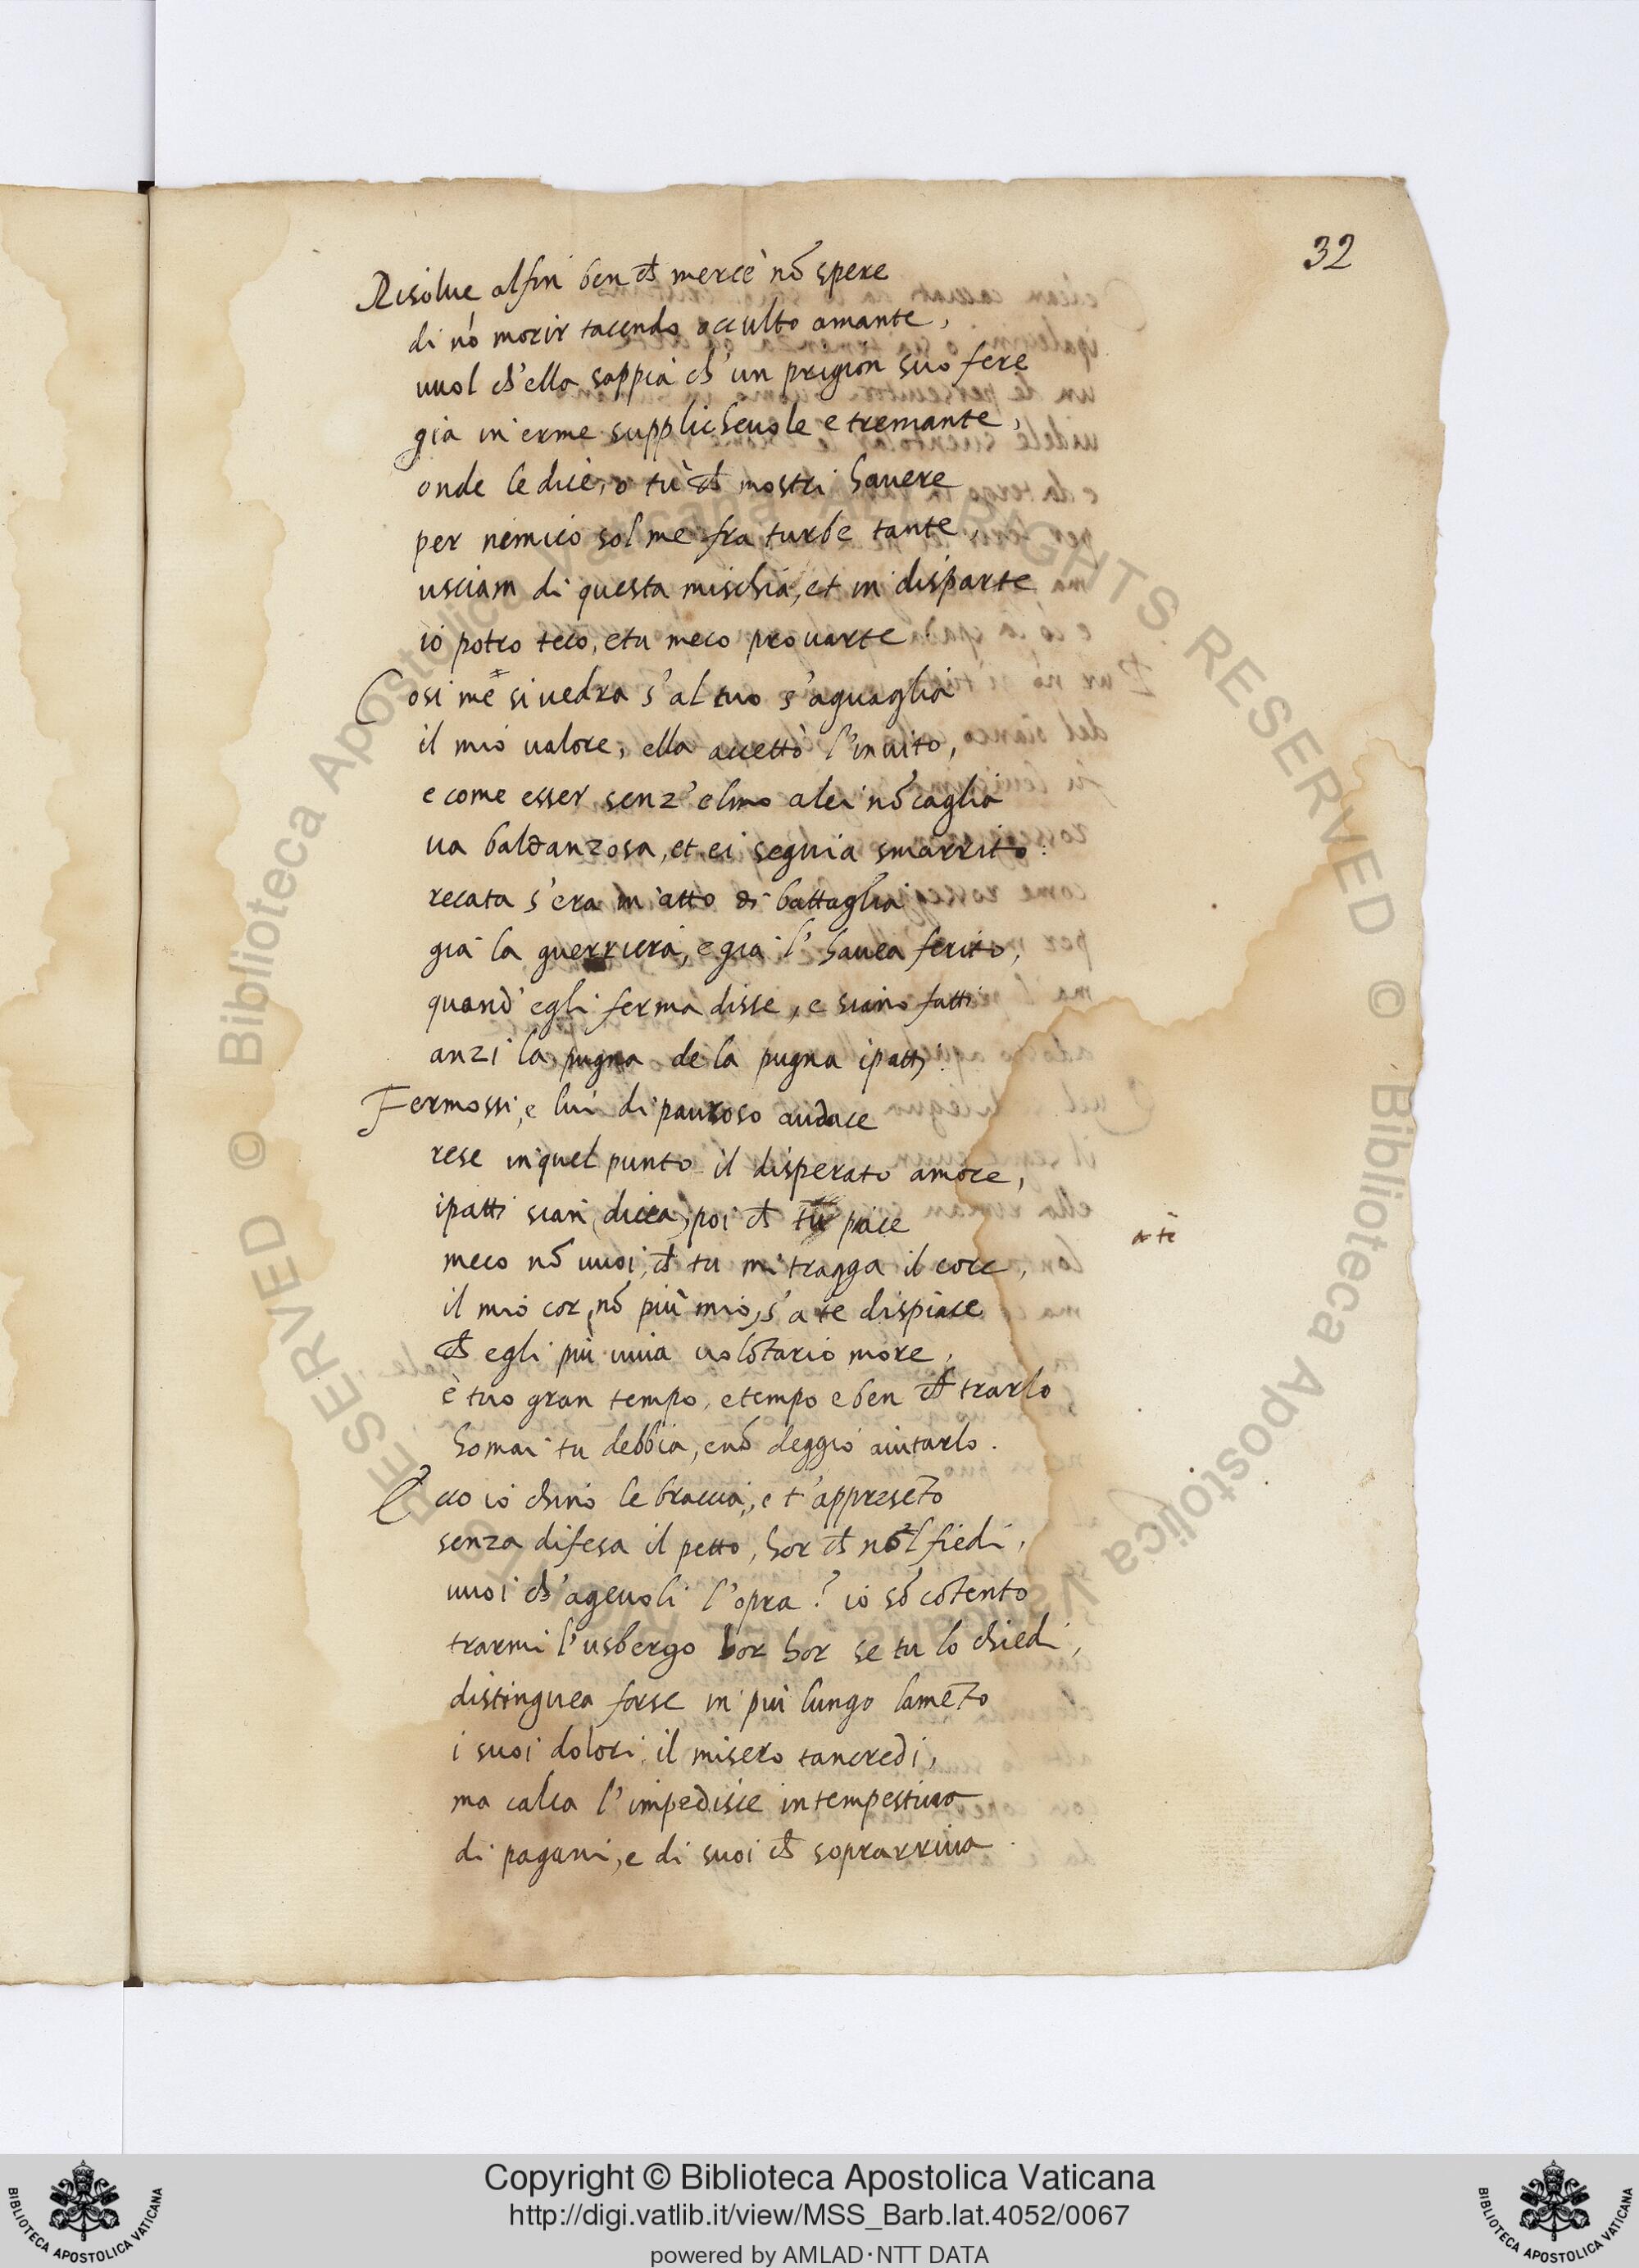 32
Risolue alfin ben ch mercè nō spere
di nō morir tacendo occulto amante,
vuol ch'ella sappia ch'un prigion suo fere
gia in'erme supplicheuole e tremante,
onde le dice, o tù ch mostri hauere
per nemico sol me fra turbe tante,
usciam di questa mischia, et in disparte
io potro teco, e tu meco prouarte.
Cosi mē si uedra s'al tuo s'aguaglia
il mio ualore, ella accettò l'inuito,
e come esser senz'elmo a lei nō caglia
ua baldanzosa, et ei seguia smarrito.
recata s'era in atto di battaglia
gia la guerriera, e gia l'hauea ferito,
quand'egli ferma disse, e siano fatti
anzi la pugna de la pugna i patti.
Fermossi, e lui di pauroso audace
rese in quel punto il disperato amore,
i patti sian (dicea) poi ch tū pace
a tē
meco nō vuoi, ch tu mi tragga il core,
il mio cor, nō più mio, s'a te dispiace
ch egli più uiua uolōtario more,
è tuo gran tempo, e tempo e ben ch trarlo
homai tu debbia, e nō deggio aiutarlo.
Ecco io chino le braccia, e t'appresēto
senza difesa il petto, hor ch nō'l fiedi,
vuoi ch'ageuoli l'opra? io sō cōtento
trarmi l'usbergo hor hor se tu lo chiedi,
distinguea forse in più lungo lamēto
i suoi dolori il misero tancredi,
ma calca l'impedisce intempestiua
di pagani, e di suoi ch soprarriua.
© Biblioteca Apostolica Vaticana ALL RIGHTS RESERVED
Copyright © Biblioteca Apostolica Vaticana
http://digi.vatlib.it/view/MSS_Barb.lat.4052/0067
powered by AMLAD·NTT DATA
BIBLIOTECA APOSTOLICA VATICANA
BIBLIOTECA APOSTOLICA VATICANA